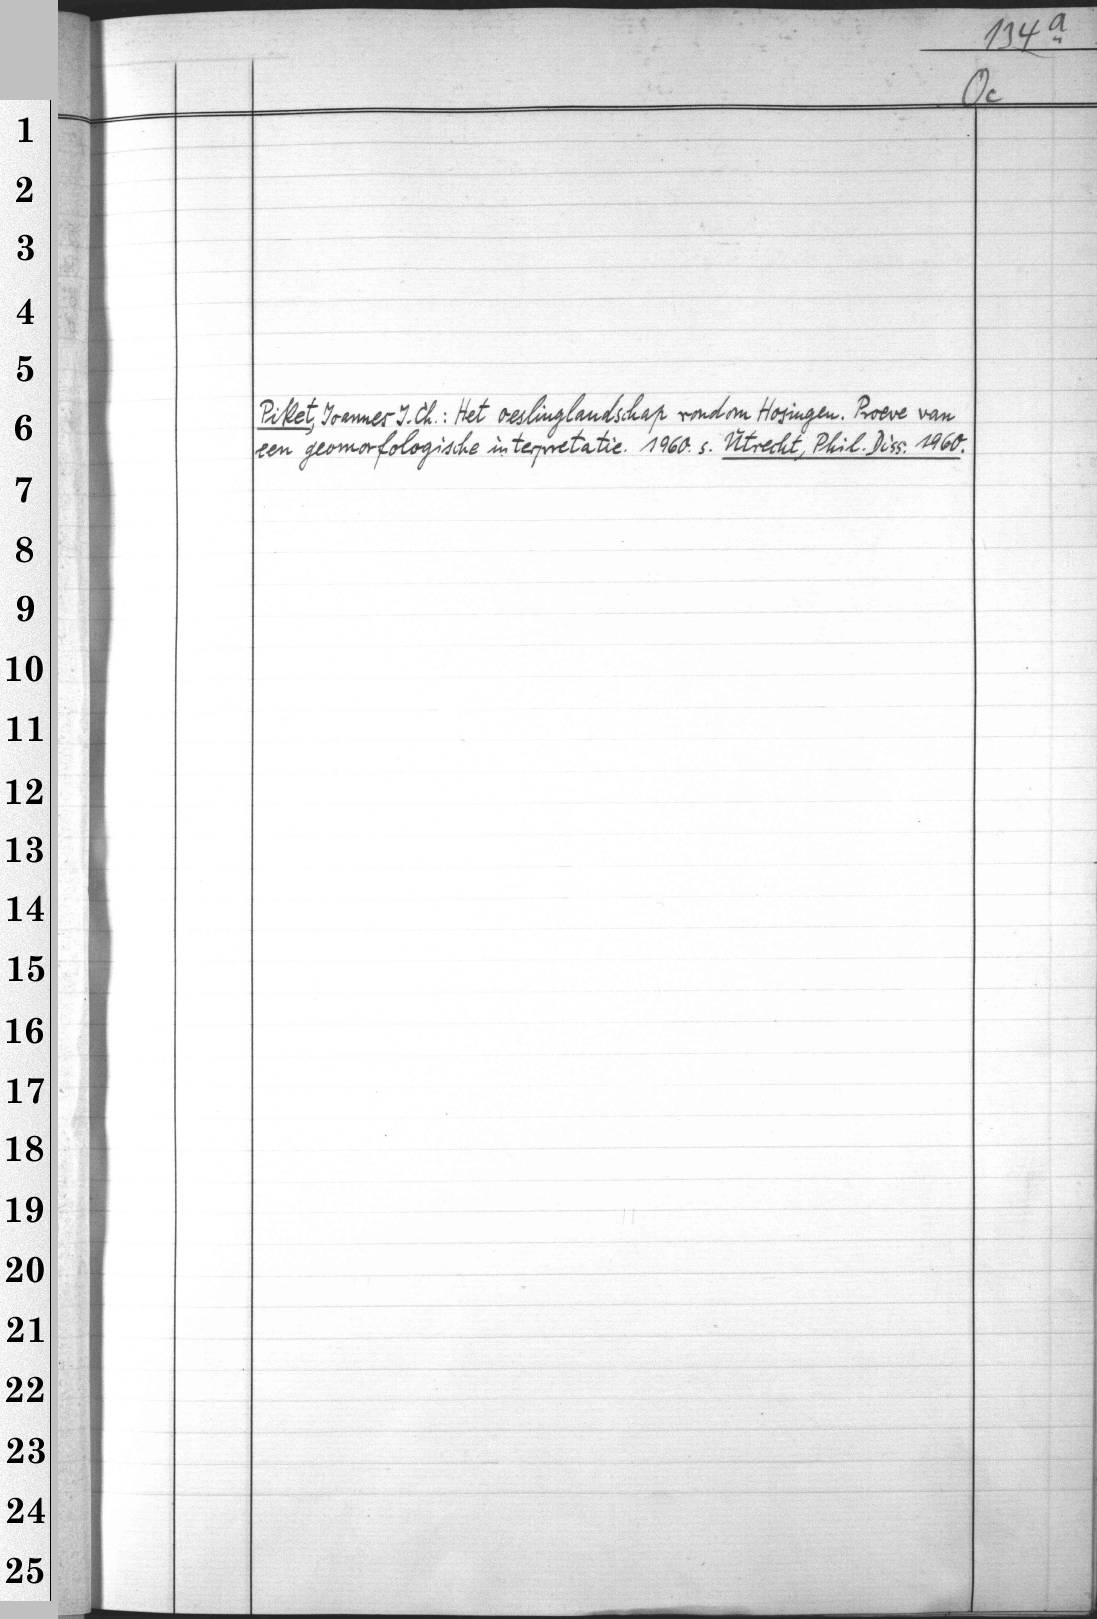 134a
Oc
1
2
3
4
5
6
Piket, Joannes J. Ch.: Het oeslinglandschap rondom Hosingen. Proeve van
een geomorfologische interpretatie. 1960. s. Utrecht, Phil. Diss. 1960.
7
8
9
10
11
12
13
14
15
16
17
18
19
20
21
22
23
24
25